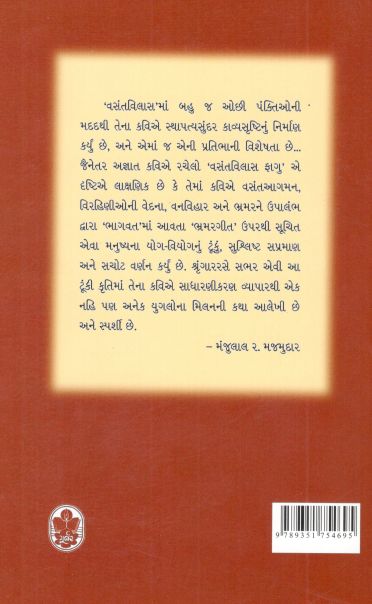 ‘વસંતવિલાસ’માં બહુ જ ઓછી પંક્તિઓની
મદદથી તેના કવિએ સ્થાપત્યસુંદર કાવ્યસૃષ્ટિનું નિર્માણ
કર્યું છે, અને એમાં જ એની પ્રતિભાની વિશેષતા છે...
જૈનેતર અજ્ઞાત કવિએ રચેલો ‘વસંતવિલાસ ફાગુ’ એ
દૃષ્ટિએ લાક્ષણિક છે કે તેમાં કવિએ વસંતઆગમન,
વિરહિણીઓની વેદના, વનવિહાર અને ભ્રમરને ઉપાલંભ
દ્વારા ‘ભાગવત’માં આવતા ‘ભ્રમરગીત’ ઉપરથી સૂચિત
એવા મનુષ્યના યોગ-વિયોગનું ટૂંકું, સુશ્લિષ્ટ સપ્રમાણ
અને સચોટ વર્ણન કર્યું છે. શ્રૃંગારરસે સભર એવી આ
ટૂંકી કૃતિમાં તેના કવિએ સાધારણીકરણ વ્યાપારથી એક
નહિ પણ અનેક યુગલોના મિલનની કથા આલેખી છે
અને સ્પર્શી છે.
– મંજુલાલ ર. મજમુદાર
ગૂર્જર
9 789351 754695